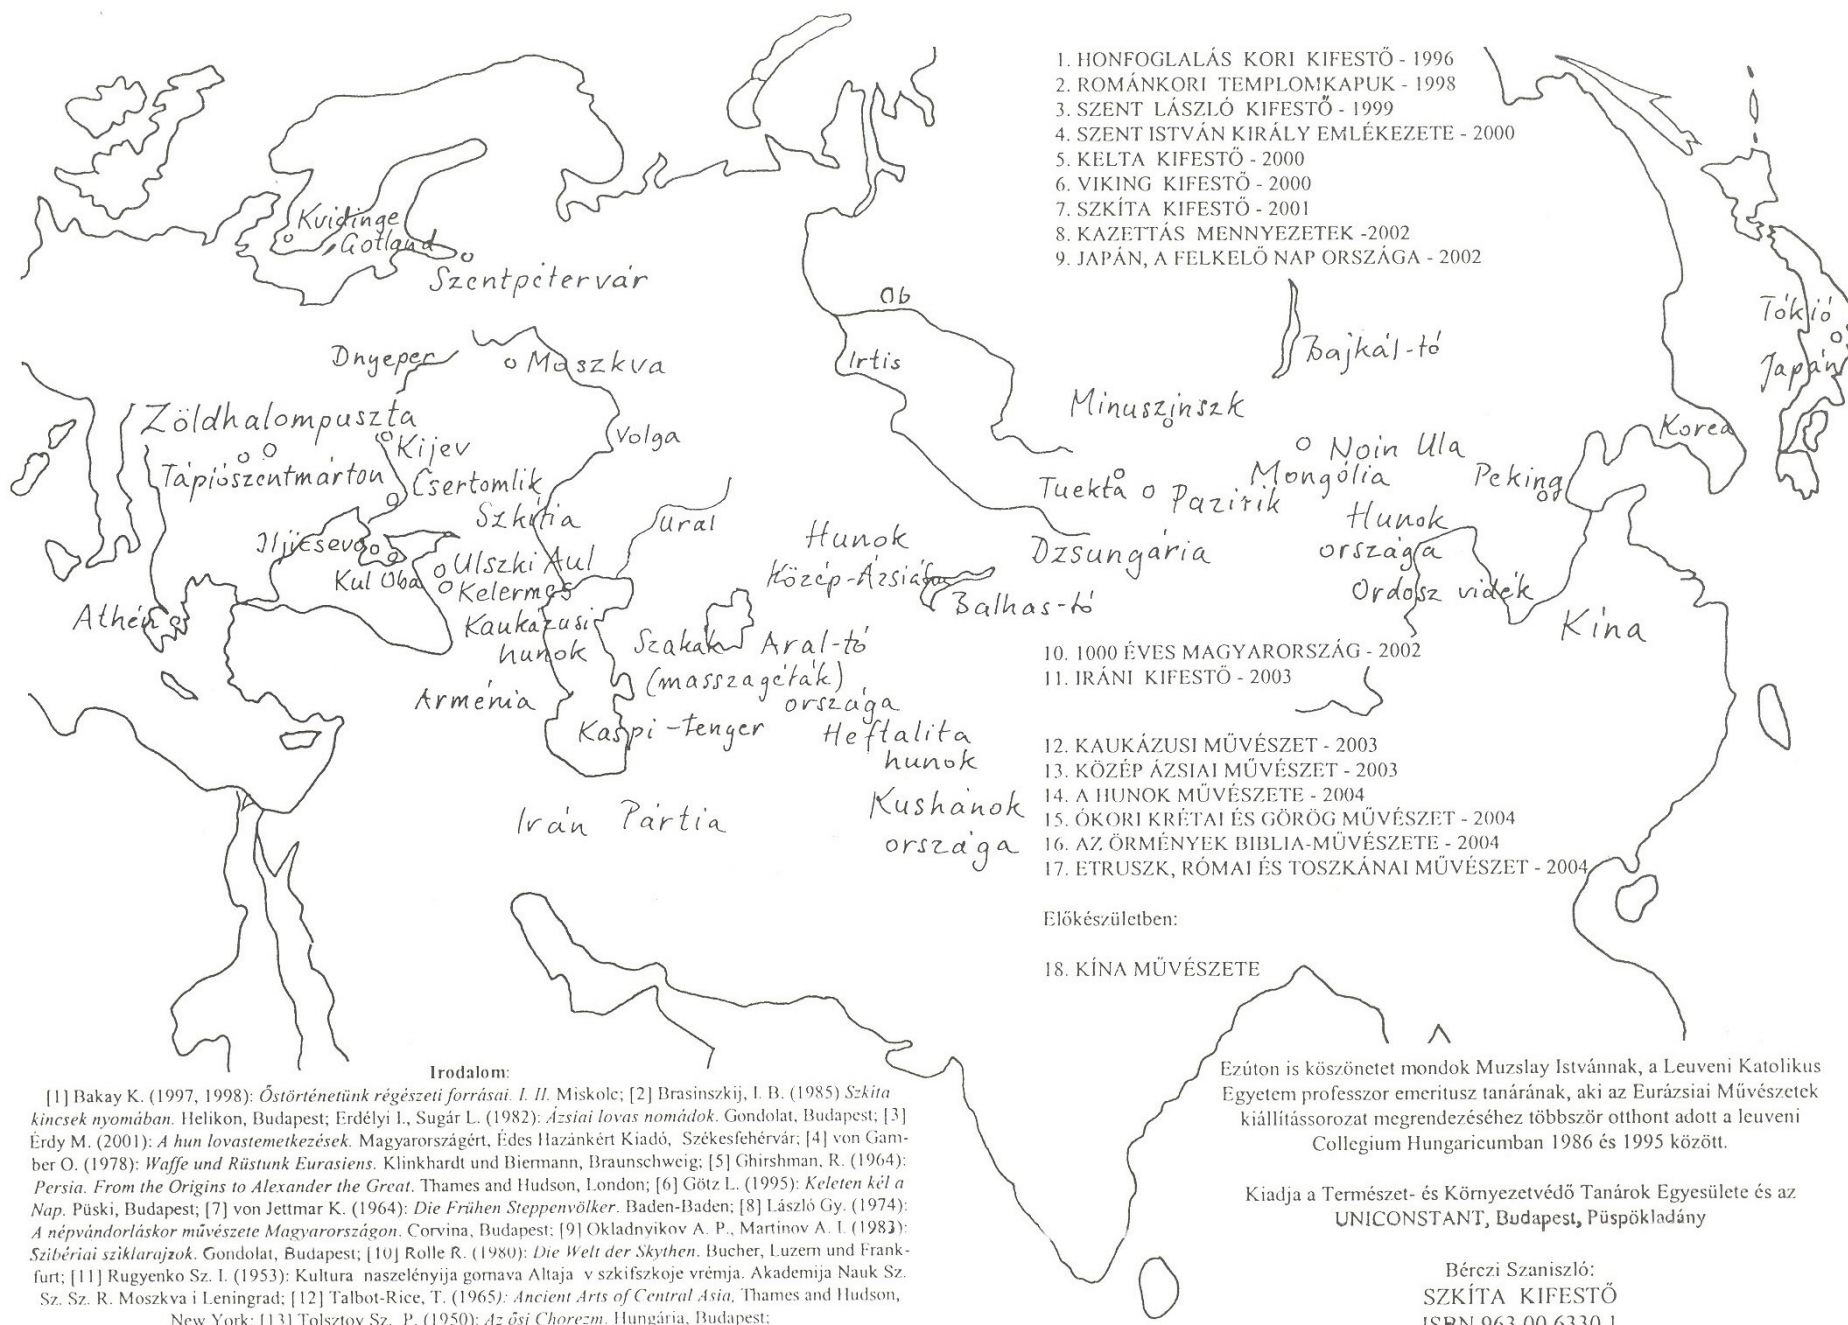 1. HONFOGLALÁS KORI KIFESTŐ - 1996
2. ROMÁNKORI TEMPLOMKAPUK - 1998
3. SZENT LÁSZLÓ KIFESTŐ - 1999
4. SZENT ISTVÁN KIRÁLY EMLÉKEZETE - 2000
5. KELTA KIFESTŐ - 2000
6. VIKING KIFESTŐ - 2000
7. SZKÍTA KIFESTŐ - 2001
8. KAZETTÁS MENNYEZETEK -2002
9. JAPÁN, A FELKELŐ NAP ORSZÁGA - 2002
Kvidinge
Gotland
Szentpétervár
Ob
Irtis
Bajkál-tó
Tókió
Japán
Dnyeper
Moszkva
Minuszinszk
Zöldhalompuszta
Kijev
Volga
Noin Ula
Korea
Tápiószentmárton
Csertomlik
Tuekta
Pazirik
Mongólia
Peking
Szkítia
Ural
Hunok
Közép-Ázsiában
Dzsungária
Hunok
országa
Iljicsevo
Kul Oba
Ulszki Aul
Kelermes
Balhas-tó
Ordosz vidék
Kína
Athén
Kaukázusi
hunok
Szakák
(masszagéták)
országa
Aral-tó
Arménia
Kaspi-tenger
Heftalita
hunok
Irán
Pártia
Kushánok
országa
10. 1000 ÉVES MAGYARORSZÁG - 2002
11. IRÁNI KIFESTŐ - 2003
12. KAUKÁZUSI MŰVÉSZET - 2003
13. KÖZÉP ÁZSIAI MŰVÉSZET - 2003
14. A HUNOK MŰVÉSZETE - 2004
15. ÓKORI KRÉTAI ÉS GÖRÖG MŰVÉSZET - 2004
16. AZ ÖRMÉNYEK BIBLIA-MŰVÉSZETE - 2004
17. ETRUSZK, RÓMAI ÉS TOSZKÁNAI MŰVÉSZET - 2004
Előkészületben:
18. KÍNA MŰVÉSZETE
Irodalom:
[1] Bakay K. (1997, 1998): Őstörténetünk régészeti forrásai. I. II. Miskolc; [2] Brasinszkij, I. B. (1985) Szkíta
kincsek nyomában. Helikon, Budapest; Erdélyi I., Sugár L. (1982): Ázsiai lovas nomádok. Gondolat, Budapest; [3]
Érdy M. (2001): A hun lovastemetkezések. Magyarországért, Édes Hazánkért Kiadó, Székesfehérvár; [4] von Gam-
ber O. (1978): Waffe und Rüstunk Eurasiens. Klinkhardt und Biermann, Braunschweig; [5] Ghirshman, R. (1964):
Persia. From the Origins to Alexander the Great. Thames and Hudson, London; [6] Götz L. (1995): Keleten kél a
Nap. Püski, Budapest; [7] von Jettmar K. (1964): Die Frühen Steppenvölker. Baden-Baden; [8] László Gy. (1974):
A népvándorláskor művészete Magyarországon. Corvina, Budapest; [9] Okladnyikov A. P., Martinov A. I. (1983):
Szibériai sziklarajzok. Gondolat, Budapest; [10] Rolle R. (1980): Die Welt der Skythen. Bucher, Luzern und Frank-
furt; [11] Rugyenko Sz. I. (1953): Kultura naszelényija gornava Altaja v szkifszkoje vrémja. Akademija Nauk Sz.
Sz. Sz. R. Moszkva i Leningrad; [12] Talbot-Rice, T. (1965): Ancient Arts of Central Asia, Thames and Hudson,
New York; [13] Tolsztov Sz. P. (1950): Az ősi Chorezm. Hungária, Budapest;
Ezúton is köszönetet mondok Muzslay Istvánnak, a Leuveni Katolikus
Egyetem professzor emeritusz tanárának, aki az Eurázsiai Művészetek
kiállítássorozat megrendezéséhez többször otthont adott a leuveni
Collegium Hungaricumban 1986 és 1995 között.
Kiadja a Természet- és Környezetvédő Tanárok Egyesülete és az
UNICONSTANT, Budapest, Püspökladány
Bérczi Szaniszló:
SZKÍTA KIFESTŐ
ISBN 963 00 6330 1